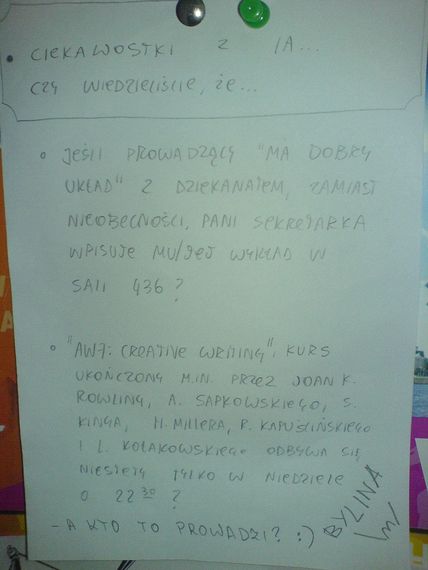 • CIEKAWOSTKI Z IA...
CZY WIEDZIELIŚCIE, że...
◦ JEŚLI PROWADZĄCY "MA DOBRY
UKŁAD" Z DZIEKANATEM, ZAMIAST
NIEOBECNOŚCI, PANI SEKRETARKA
WPISUJE MU/JEJ WYKŁAD W
SALI 436?
◦ "AW7: CREATIVE WRITING", KURS
UKOŃCZONY M.IN. PRZEZ JOAN K.
ROWLING, A. SAPKOWSKIEGO, S.
KINGA, H. MILLERA, R. KAPUŚCIŃSKIEGO
I L. KOŁAKOWSKIEGO ODBYWA SIĘ
NIESTETY TYLKO W NIEDZIELE
O 22 30 ?
- A KTO TO PROWADZI? :)
BYLINA